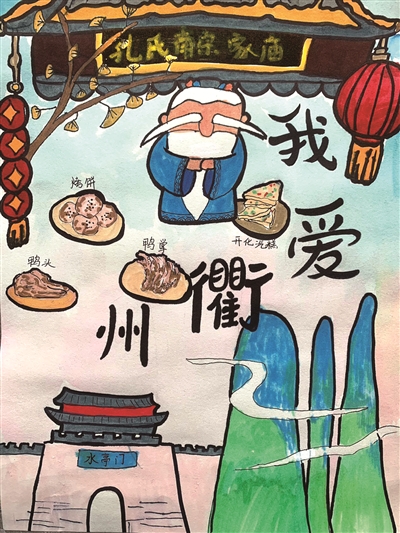 孔氏南宗家庙
我爱
衢州
烤饼
鸭头
鸭掌
开化汽糕
水亭门